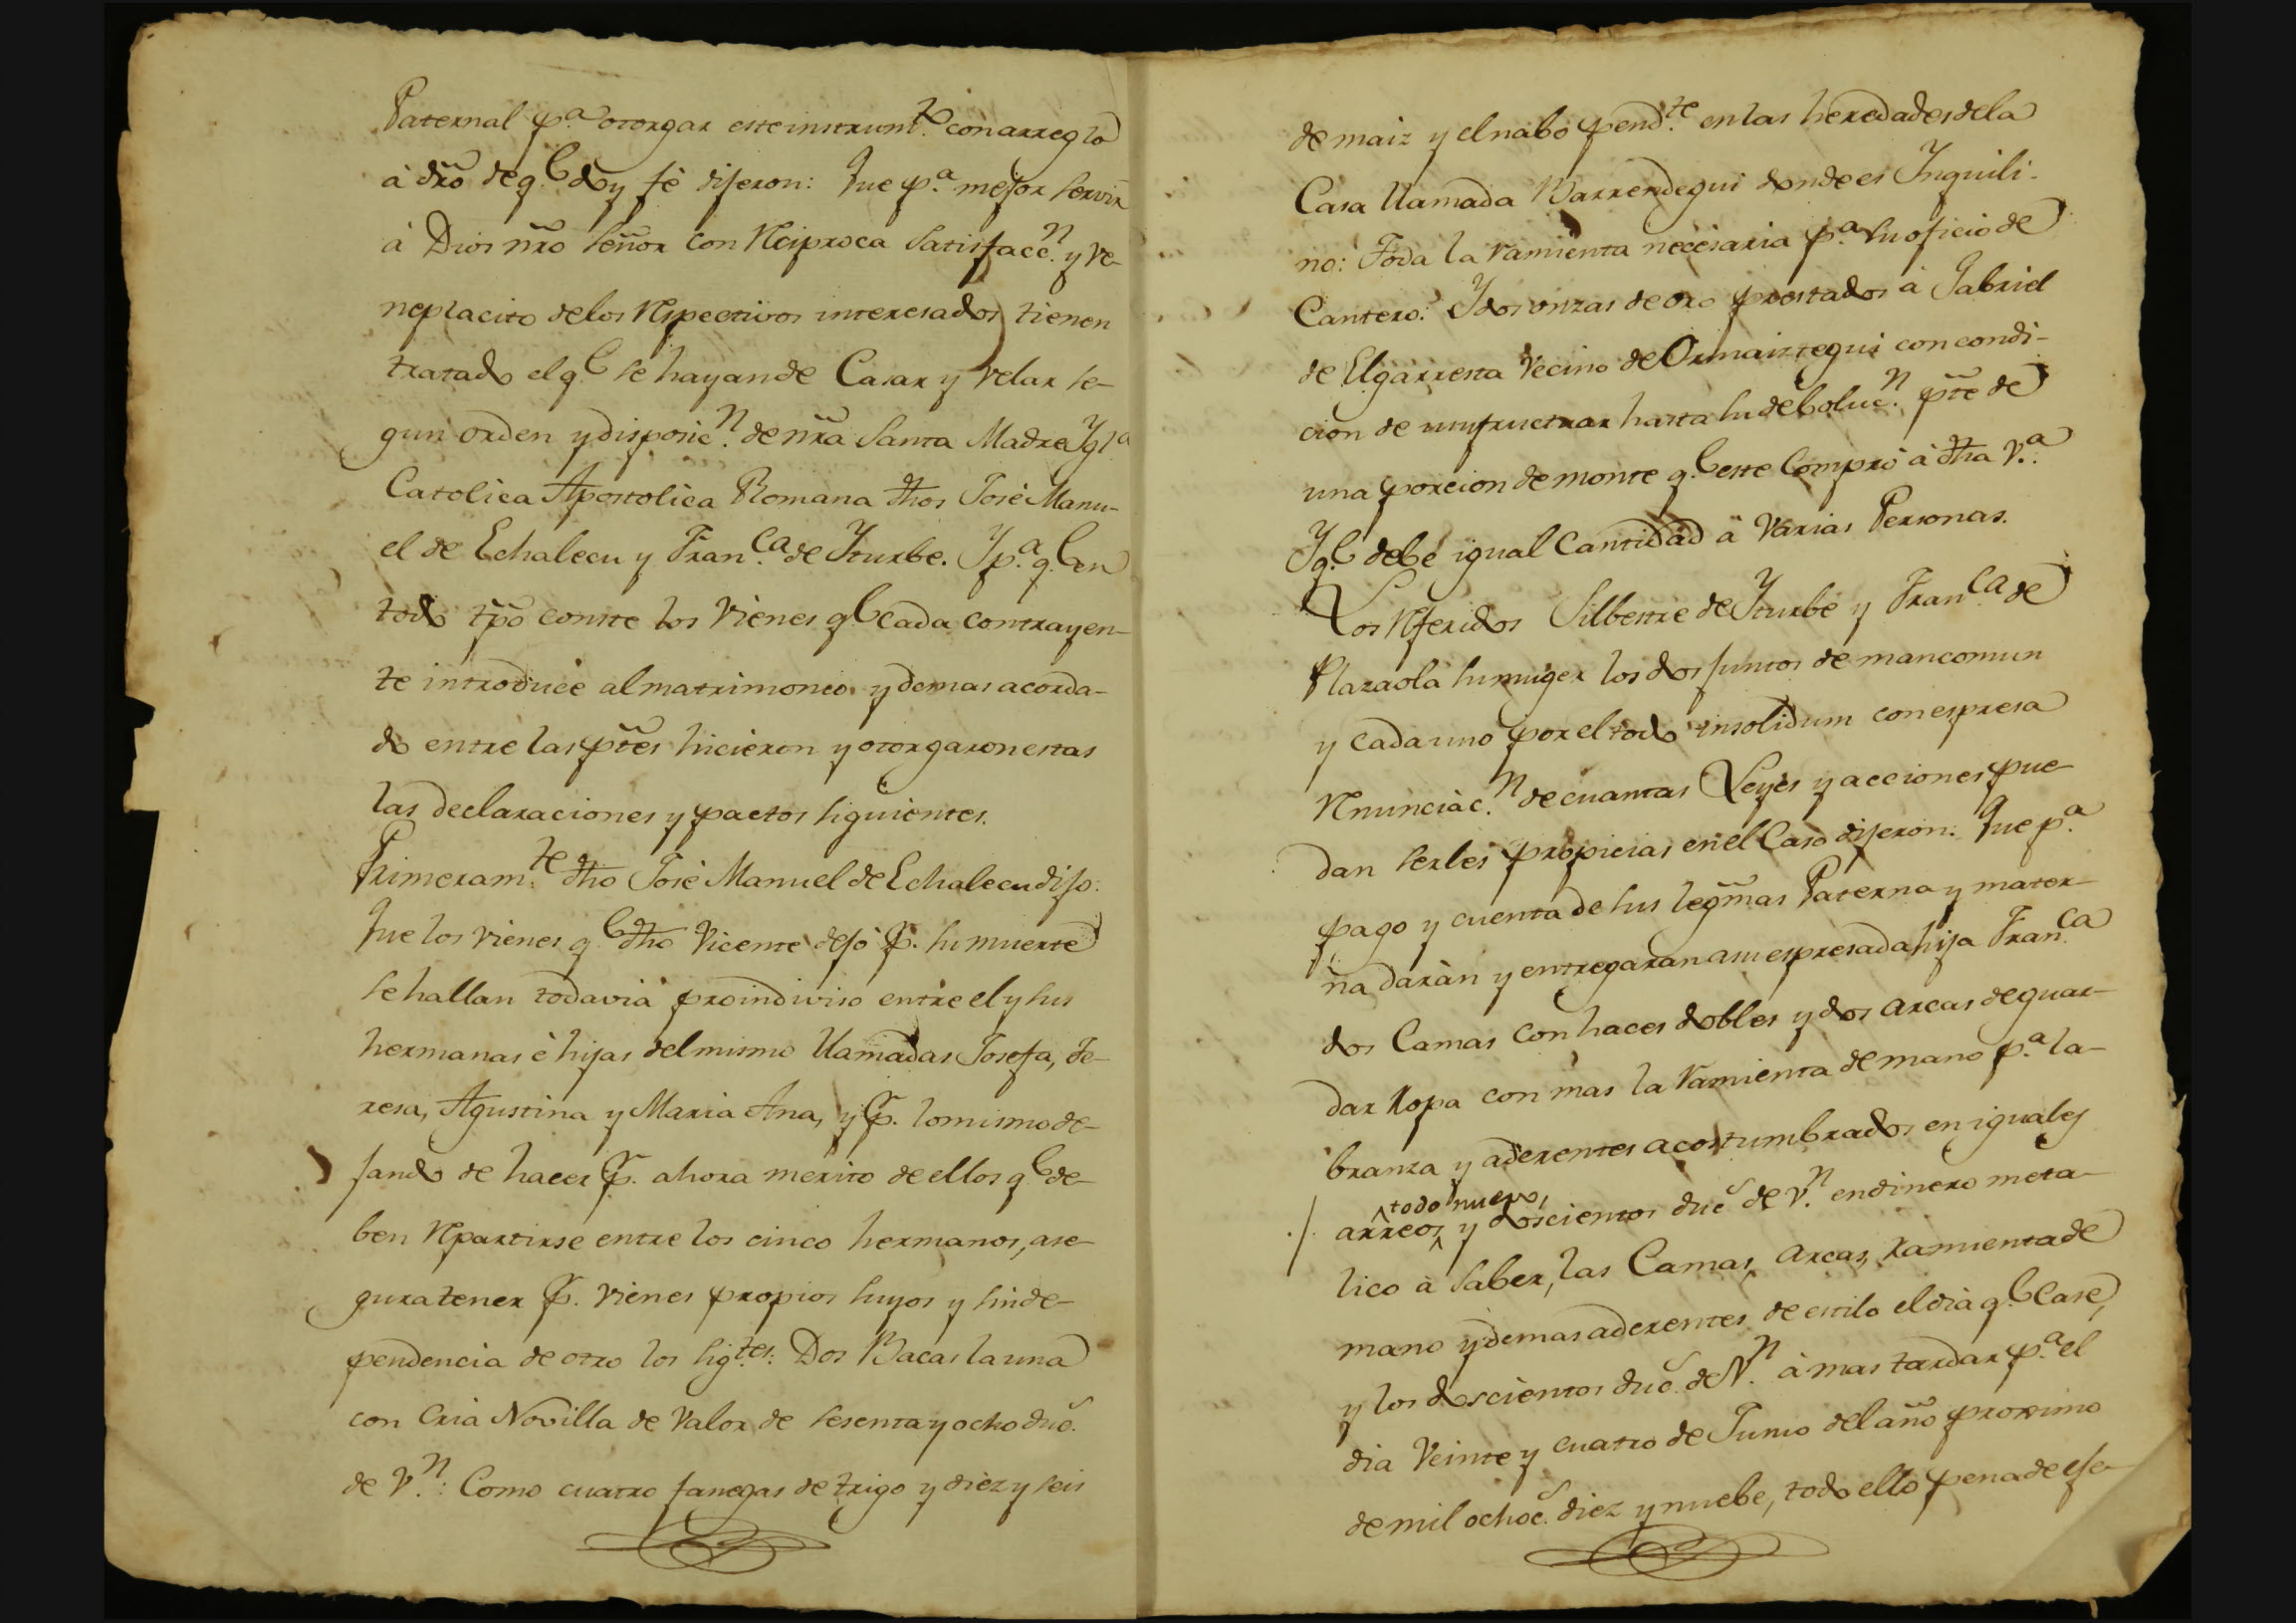 Paternal p.ª otorgar este instrum.to con arreglo
à dr̃o de q.e doy fè dijeron: Que p.ª mejor servir
à Dios nr̃o señor con reciproca satisfacc.n y ve-
neplacito de los respectivos interesados tienen
tratado el q.e se hayan de Casar y velar se-
gun orden y disposic.n de nr̃a Santa Madre Ygl.ª
Catolica Apostolica Romana dhos José Manu-
el de Echalecu y Fran.ca de Yturbe. Y p.ª q.e en
todo tp̃o conste los vienes q.e cada contrayen-
te introduce al matrimonio y demas acorda-
do entre las pt̃es hicieron y otorgaron estas
las declaraciones y pactos siguientes.
Primeram.te dho José Manuel de Echalecu dijo:
Que los vienes q.e dho Vicente dejò p.r su muerte
se hallan todavia proindiviso entre el y sus
hermanas è hijas del mismo llamadas Josefa, Te-
resa, Agustina y Maria Ana, y p.r lo mismo de-
jando de hacer p.r ahora merito de ellos q.e de-
ben repartirse entre los cinco hermanos, ase-
gura tener p.r vienes propios suyos y sin de-
pendencia de otro los sig.tes: Dos Bacas la una
con Cria Novilla de valor de sesenta y ocho duc.s
de v.n: Como cuatro fanegas de trigo y diez y seis
de maiz y el nabo pend.te en las heredades de la
Casa llamada Barrendegui donde es Ynquili-
no: Toda la ramienta necesaria p.ª su oficio de
Cantero: Y dos onzas de oro prestados à Gabriel
de Elgarresta vecino de Ormaiztegui con condi-
cion de usufructuar hasta su deboluc.n pt̃e de
una porcion de monte q.e este compró à dha V.ª
Y q.e debe igual Cantidad à varias Personas.
Los referidos Silbestre de Yturbe y Fran.ca de
Plazaola su muger los dos juntos de mancomun
y cada uno por el todo insolidum con espresa
renunciac.n de cuantas Leyes y acciones pue-
dan serles propicias en el Caso dijeron: Que p.ª
pago y cuenta de sus legm̃as Paterna y mater-
na daràn y entregaran a su espresada hija Fran.ca
dos Camas con haces dobles y dos arcas de guar-
dar ropa con mas la ramienta de mano p.ª la-
branza y aderentes acostumbrados en iguales
todo nuevo,
arreos y doscientos duc.s de v.n en dinero meta-
lico à saber, las Camas, arcas, ramienta de
mano y demas aderentes de estilo el dia q.e Case,
y los doscientos duc.s de v.n à mas tardar p.ª el
dia veinte y cuatro de Junio del año proximo
de mil ochoc.s diez y nuebe, todo ello pena de eje-